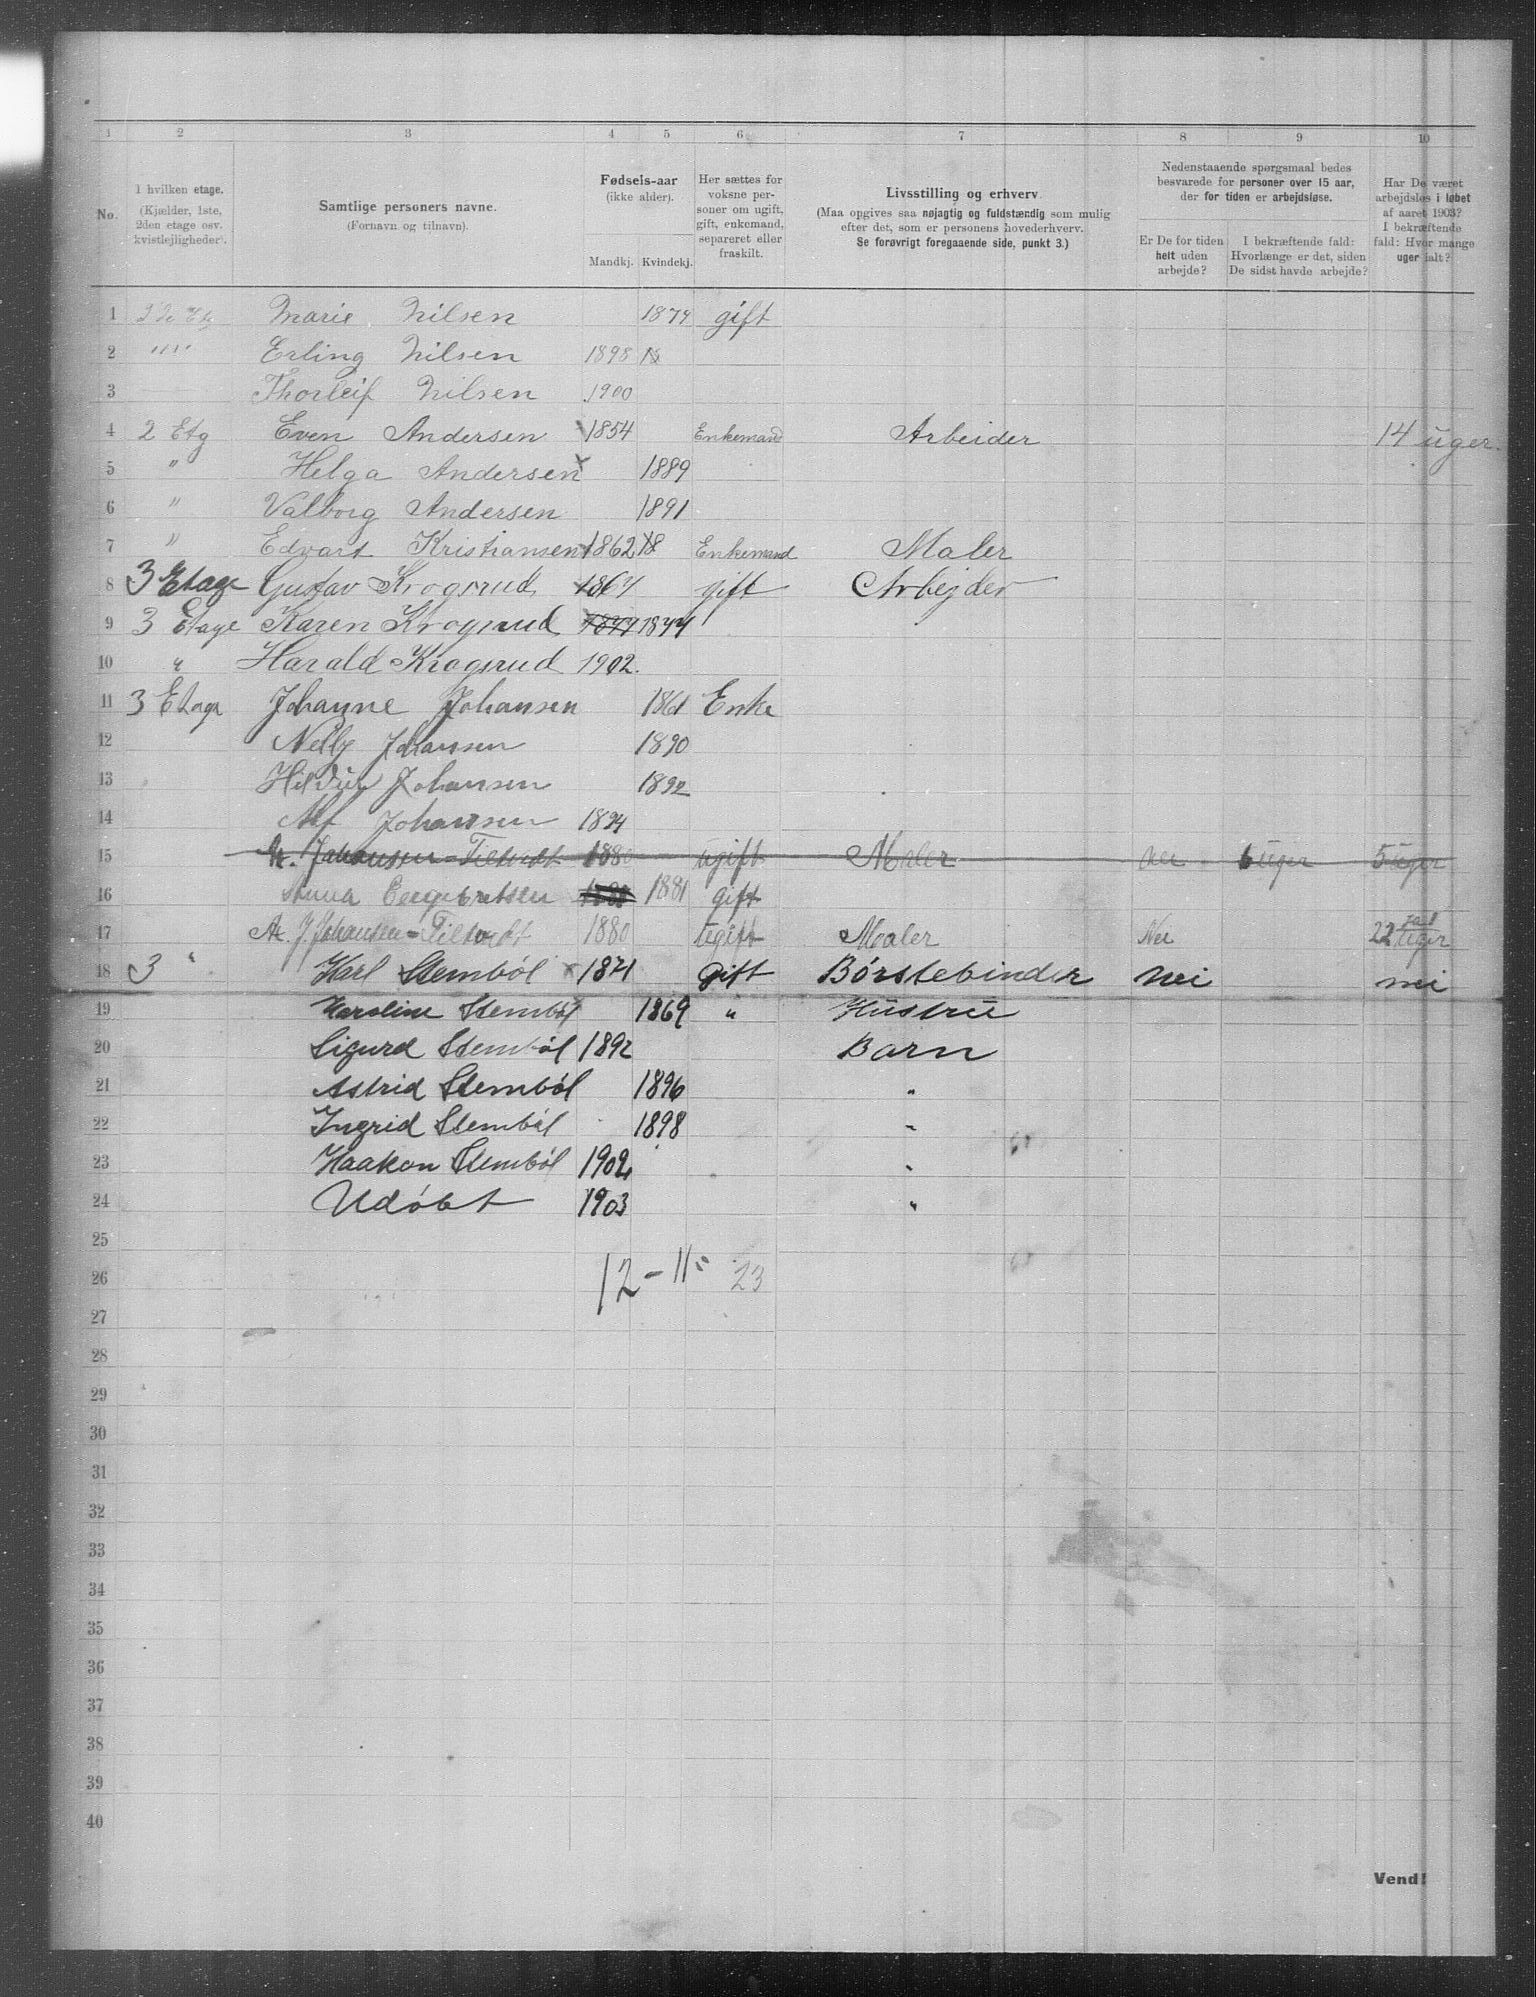 1 2 3 4 5 6 7 8 9 10
No.
I hvilken etage.
(Kjælder, 1ste,
2den etage osv.
kvistlejligheder).
Samtlige personers navne.
(Fornavn og tilnavn).
Fødsels-aar
(ikke alder).
Mandkj. Kvindekj.
Her sættes for
voksne per-
soner om ugift,
gift, enkemand,
separeret eller
fraskilt.
Livsstilling og erhverv
(Maa opgives saa nøjagtig og fuldstændig som mulig
efter det, som er personens hovederhverv.
Se forøvrigt foregaaende side, punkt 3.)
Nedenstaaende spørgsmaal bedes
besvarede for personer over 15 aar,
der for tiden er arbejdsløse.
Er De for tiden
helt uden
arbejde?
I bekræftende fald:
Hvorlænge er det, siden
De sidst havde arbejde?
Har De været
arbejdsløs i løbet
af aaret 1903?
I bekræftende
fald: Hvor mange
uger ialt?
1 Marie Nilsen 1874 gift
2 " " Erling Nilsen 1898
3 Thorleif Nilsen 1900
4 2 Etg Even Andersen 1854 Enkemand Arbeider 14 uger.
5 " Helga Andersen 1889
6 " Valborg Andersen 1891
7 " Edvart Kristiansen 1862 Enkemand Maler
8 3 Etage Gustav Krogsrud 1867 gift Arbejder
9 3 Etage Karen Krogsrud 1877 1877
10 " Harald Krogsrud 1902.
11 3 Etage Johanne Johansen 1861 Enke
12 Nelly Johansen 1890
13 Hildur Johansen 1892
14 Alf Johansen 1894
15 Johansen-Tiltvedt 1880 ugift Maler nei 6 uger 5 uger
16 Anna Engebretsen 1881 gift
17 J. Johansen=Tiltvedt 1880 ugift Maler Nei 22 uger
18 3 " Karl Stembøl 1871 gift Børstebinder nei nei
19 Karoline Stembøl 1869 " Hustru
20 Sigurd Stembøl 1892 Barn
21 Astrid Stembøl 1896 "
22 Ingrid Stembøl 1898 "
23 Haakon Stembøl 1902 "
24 Udøbt 1903 "
25
26 12 - 11 = 23
27
28
29
30
31
32
33
34
35
36
37
38
39
40
Vend!